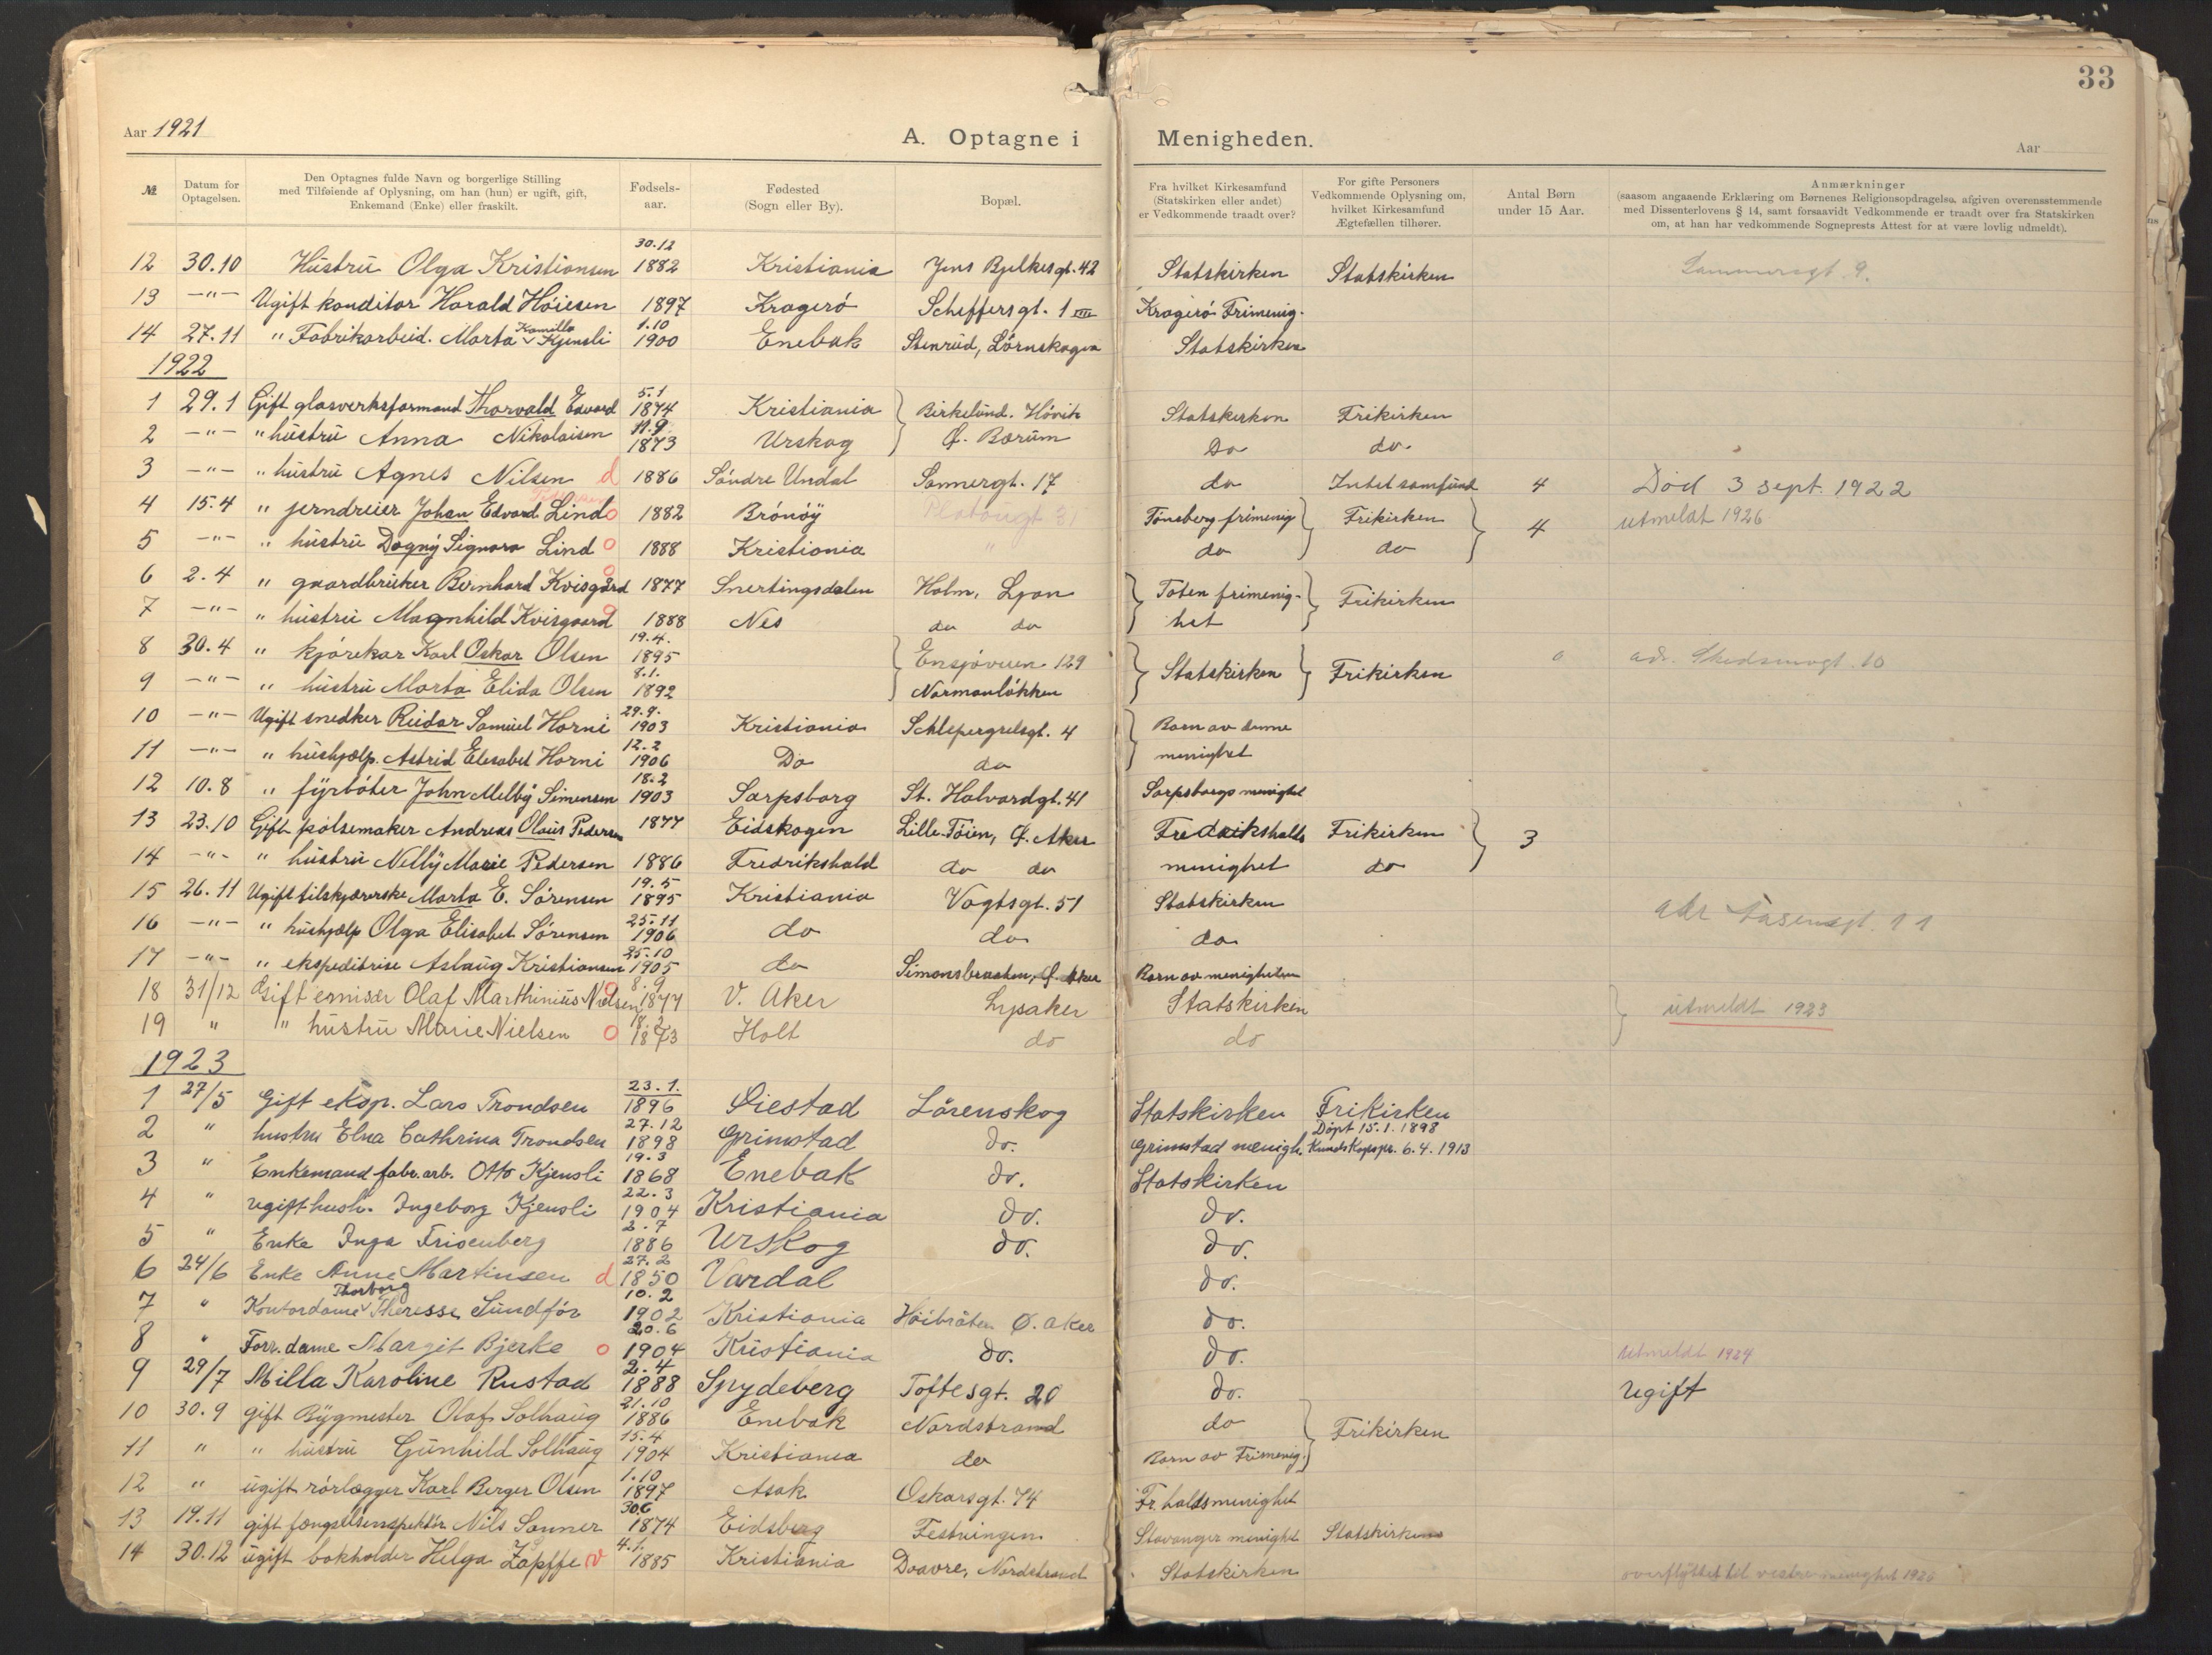 33
Aar 1921
A. Optagne i Menigheden.
Aar
№ Datum for Optagelsen. Den Optagnes fulde Navn og borgerlige Stilling med Tilføiende af Oplysning, om han (hun) er ugift, gift, Enkemand (Enke) eller fraskilt. Fødsels-aar. Fødested (Sogn eller By). Bopæl. Fra hvilket Kirkesamfund (Statskirken eller andet) er Vedkommende traadt over? For gifte Personers Vedkommende Oplysning om, hvilket Kirkesamfund Ægtefællen tilhører. Antal Børn under 15 Aar. Anmærkninger (saasom angaaende Erklæring om Børnenes Religionsopdragelse, afgiven overensstemmende med Dissenterlovens § 14, samt forsaavidt Vedkommende er traadt over fra Statskirken om, at han har vedkommende Sogneprests Attest for at være lovlig udmeldt).
12 30.10 Hustru Olga Kristiansen 30.12 1882 Kristiania Jens Bjelkesgt. 42 Statskirken Statskirken
13 -"- Ugift konditor Harald Höiesen 1897 Kragerö Scheffersgt. 1 III Kragerö Frimenig.
14 27.11 " Fabrikarbeid. Marta Kamilla Kjensli 1.10 1900 Enebak Stenrud, Lörnskogen Statskirken
1922
1 29.1 Gift glasverksformand Thorvald Edvard 5.1 1874 Kristiania Birkelund. Hövik Statskirken Frikirken
2 -"- " hustru Anna Nikolaisen 11.9 1873 Urskog Ö. Bærum Do do.
3 -"- " hustru Agnes Nilsen d 1886 Söndre Undal Sannergt. 17 do Intet samfund 4 Död 3 sept. 1922
4 15.4 " jerndreier Johan Edvard Lind o 1882 Brönöy Tönsberg frimenig Frikirken 4 utmeldt 1926
5 -"- " hustru Dagny Signora Lind o 1888 Kristiania " do do
6 2.4 " gaardbruker Bernhard Kvisgård o 1877 Snertingsdalen Holm, Ljan Toten frimenig- Frikirken
7 -"- " hustru Magnhild Kvisgaard o 1888 Nes do do het
8 30.4 " kjörekar Karl Oskar Olsen 19.4. 1895 Ensjöveien 129 Statskirken Frikirken 0 adr. Skedsmogt. 10
9 -"- " hustru Marta Elida Olsen 8.1. 1892 Normanlökken
10 -"- Ugift snedker Reidar Samuel Horni 29.9. 1903 Kristiania Schlepergrelsgt. 4 Barn av denne
11 -"- " hushjælp. Astrid Elesabet Horni 12.2 1906 Do do menighet
12 10.8 " fyrböter John Melby Simensen 18.2 1903 Sarpsborg St. Halvardgt. 41 Sarpsborgs menighet
13 23.10 Gift pölsemaker Andreas Olaus Pedersen 1877 Eidskogen Lille-Töien, Ö. Aker Fredrikshalds Frikirken 3
14 -"- " hustru Nelly Marie Pedersen 1886 Fredrikshald do do menighet do
15 26.11 Ugift tilskjærerske Marta E. Sörensen 19.5 1895 Kristiania Vogtsgt. 51 Statskirken
16 -"- " hushjælp Olga Elisabet Sörensen 25.11 1906 do do do
17 -"- " ekspeditrise Aslaug Kristiansen 25.10 1905 do Simonsbraaten, Ö. Aker Barn av menigheten
18 31/12 Gift emisær Olaf Marthinius Nielsen o 8.9 1877 V. Aker Lysaker Statskirken utmeldt 1923
19 " " hustru Marie Nielsen o 18.2 1873 Holt do do
1923
1 27/5 Gift eksp. Lars Trondsen 23.1. 1896 Øiestad Lörenskog Statskirken Frikirken
2 " hustru Elna Cathrina Trondsen 27.12 1898 Grimstad do. Grimstad menigh. Döpt 15.1.1898 Kundskapspr. 6.4.1913
3 " Enkemand fabr. arb. Otto Kjensli 19.3 1868 Enebak do. Statskirken
4 " ugift hush. Ingeborg Kjensli 22.3 1904 Kristiania do. do.
5 " Enke Inga Frisenberg 2.7 1886 Urskog do. do.
6 24/6 Enke Anne Martinsen d 27.2 1850 Vardal do.
7 " Kontordame Thorborg Theresse Sundför 10.2 1902 Kristiania Höibråten Ø. Aker do.
8 " Forr. dame Margit Bjerke o 20.6 1904 Kristiania do. do. Utmeldt 1924
9 29/7 Milla Karoline Rustad 2.4 1888 Spydeberg Toftesgt. 20 do. Ugift
10 30.9 gift Bygmester Olaf Solhaug 21.10 1886 Enebak Nordstrand do Frikirken
11 " " hustru Gunhild Solhaug 15.4 1904 Kristiania do Barn av Frimenig.
12 " ugift rörlægger Karl Berger Olsen 1.10 1897 Asak Oskarsgt. 74 Fr. haldsmenighet
13 19.11 gift fængselsinspektör Nils Sanner 30.6 1874 Eidsberg Festningen Stavanger menighet Statskirken
14 30.12 ugift bokholder Helga Zapffe v 4.1. 1885 Kristiania Doavre, Nordstrand Statskirken overflyttet til vestre menighet 1926